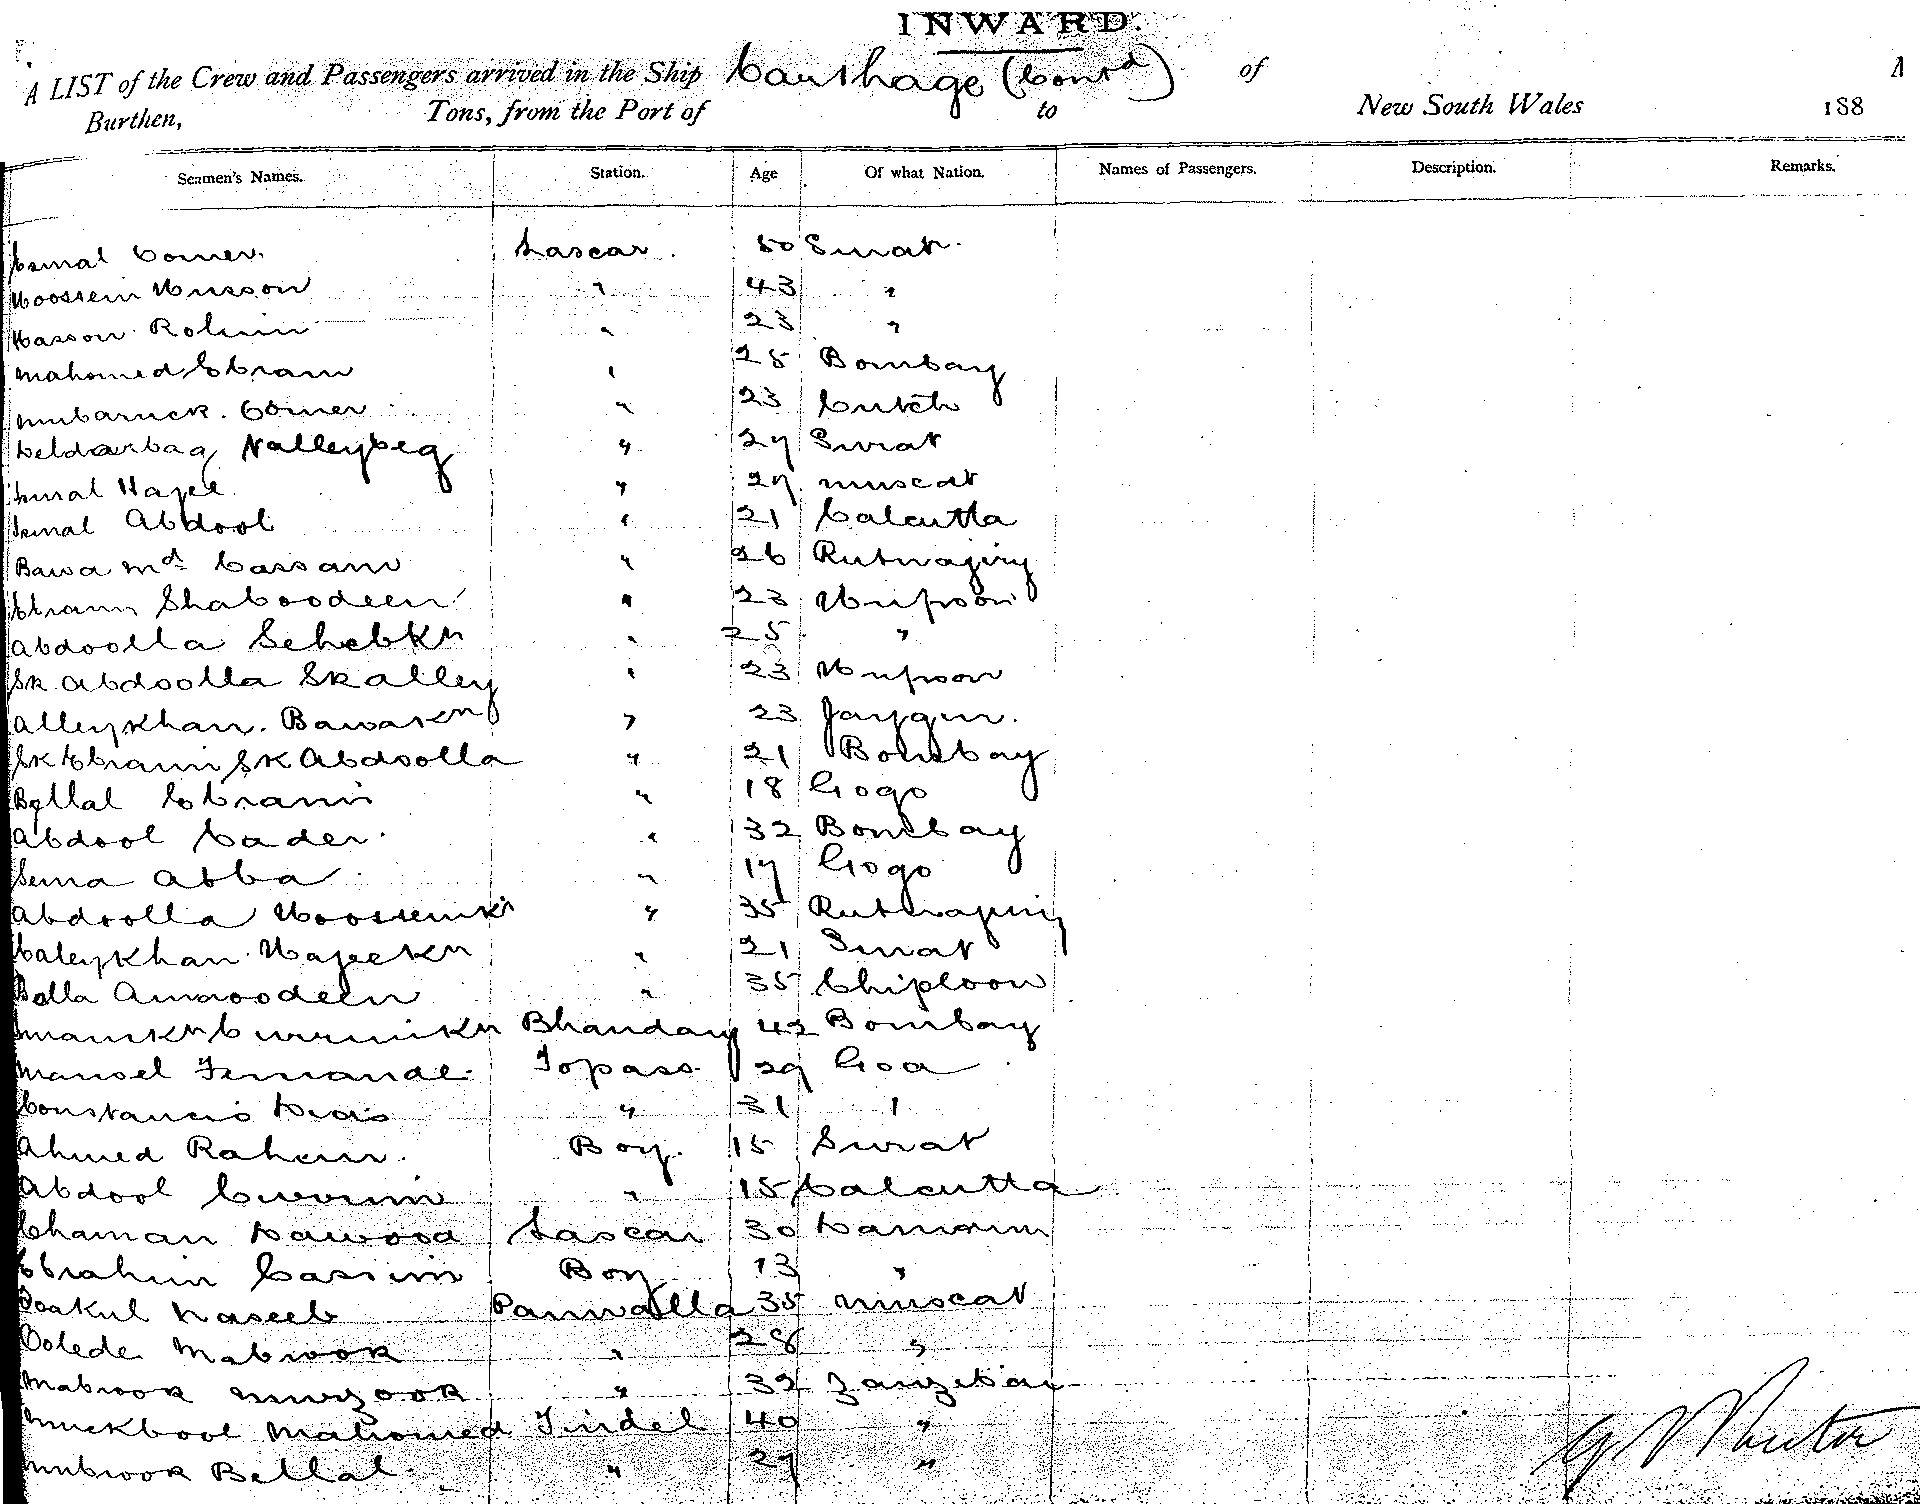 INWARD.
A LIST of the Crew and Passengers arrived in the Ship Carthage (Contd) of
Burthen, Tons, from the Port of to New South Wales 188
Seamen's Names. Station. Age Of what Nation. Names of Passengers. Description. Remarks.
Esmal Comer. Lascar. 50 Surat.
Hoossein Husson " 43 "
Hasson Rohim " 23 "
Mahomed Ebram " 25 Bombay
Mubaruck. Comer " 23 Cutch
Deldarbag Nalleybeg " 27 Surat
Hajee " 27 Muscat
Abdool " 21 Calcutta
Bawa Md Cassam " 26 Rutnajiry
Ebram Shaboodeen " 23
Abdoolla Sehebkn " 25 "
Sk Abdoolla Sk Alley " 23
Alleykhan. Bawakn " 23
Sk Ebram Sk Abdoolla " 21 Bombay
Bellal Ebram " 18 Gogo
Abdool Cader. " 32 Bombay
Sema Abba " 17 Gogo
Abdoolla Hoosseink " 35 Rutnajiry
Caleykhan Hajeekn " 21 Surat
Balla Amroodeen " 35 Chiploon
Currimkn Bhandary 42 Bombay
Manoel Fernande. Topass 29 Goa
Constancio Dias " 31 "
Ahmed Rahim. Boy. 15 Surat
Abdool Currim " 15 Calcutta
Chaman Dawood Lascar 30
Ebrahim Cassim Boy 13 "
Naseeb Pannwalla 35 Muscat
Mabrook " 28 "
Mabrook Murzook " 32 Zanzibar
Muckbool Mahomed Tindel 40 "
Mubrook Bellal. " 27 "